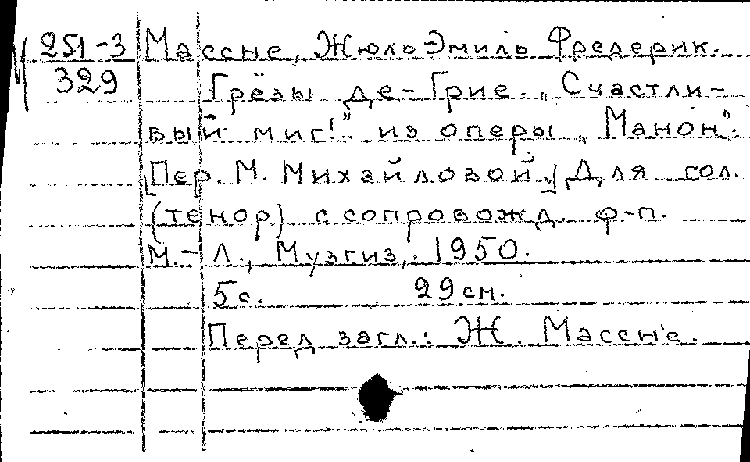 М 251-3 Массне, Жюль Эмиль Фредерик.
329 Грёзы де-Грие. „Счастли-
вый миг!" из оперы „Манон".
[Пер. М. Михайловой.] Для гол.
(тенор) с сопровожд. ф-п.
М.-Л., Музгиз, 1950.
5с. 29 см.
Перед загл.: Ж. Массне.